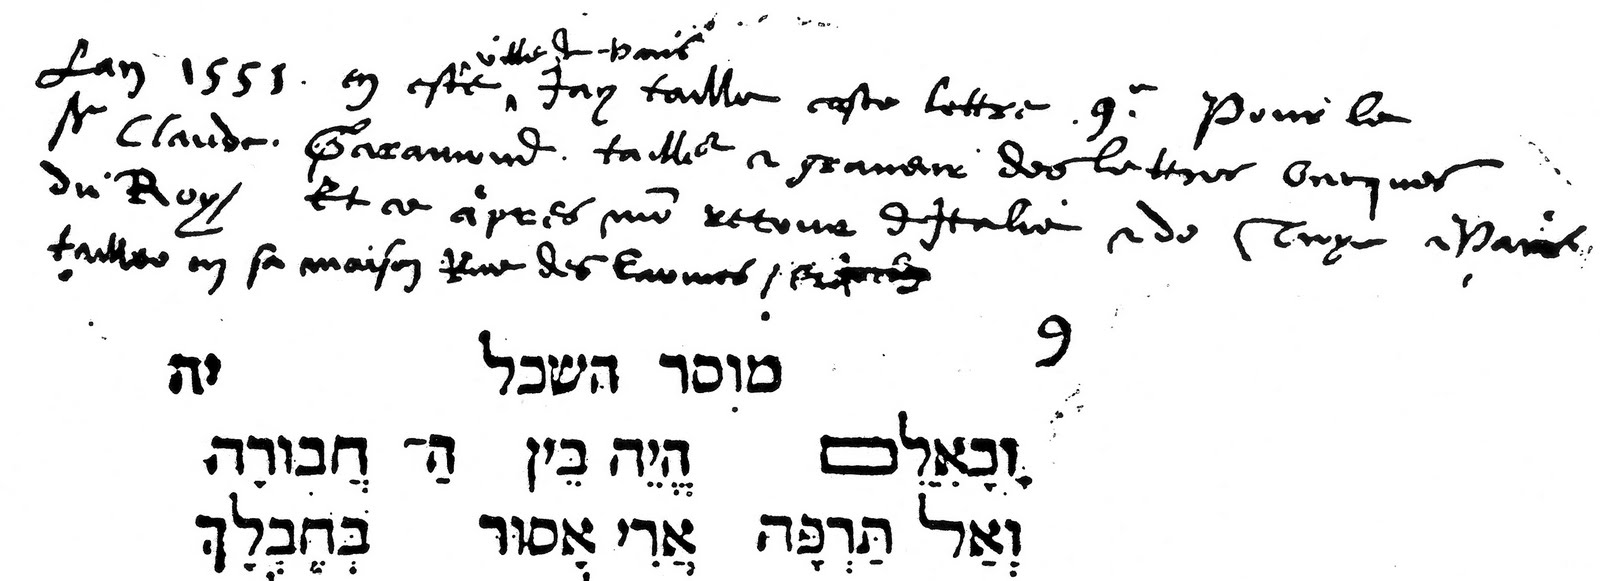 ville de Paris
Lan 1551. en este Jay taille ceste lettre .9.e Pour le
Sr Claude. Garamond. tailleur & graveur des lettres Grecques
du Roy/ Et ce apres mō retour d'Italie & de Troye a Paris
taillee en sa maison Rue des Carmes /
9
מוסר השכל יה
וּכְאִלֵּם הֱיֵה בֵּין הַ־ חֲבוּרָה
וְאַל תַּרְפֶּה אֲרִי אָסוּר בְּחֶבְלָךְ